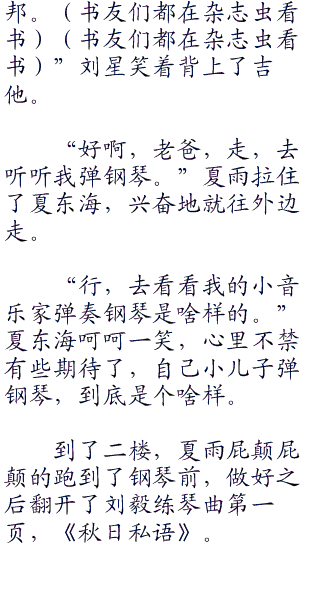 邦。（书友们都在杂志虫看
书）（书友们都在杂志虫看
书）”刘星笑着背上了吉
他。
“好啊，老爸，走，去
听听我弹钢琴。”夏雨拉住
了夏东海，兴奋地就往外边
走。
“行，去看看我的小音
乐家弹奏钢琴是啥样的。”
夏东海呵呵一笑，心里不禁
有些期待了，自己小儿子弹
钢琴，到底是个啥样。
到了二楼，夏雨屁颠屁
颠的跑到了钢琴前，做好之
后翻开了刘毅练琴曲第一
页，《秋日私语》。